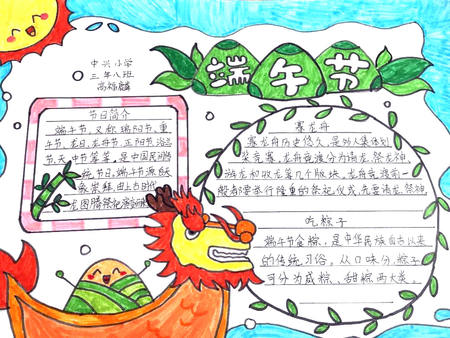 端午节
中兴小学
三年八班
高烁麟
节日简介
端午节，又称端阳节，重
午节、龙日、龙舟节、正阳节、浴兰
节、天中节等等，是中国民间传
统节日。端午节源自天
象崇拜，由上古时代
龙图腾祭祀演变而
赛龙舟
赛龙舟历史悠久，是多人集体划
桨竞赛。龙舟竞渡分为请龙、祭龙神、
游龙和收龙等几个版块。龙舟竞渡前一
般都要举行隆重的祭祀仪式，先要请龙、祭神
吃粽子
端午节食粽，是中华民族自古以来
的传统习俗。从口味分，粽子
可分为咸粽、甜粽两大类。